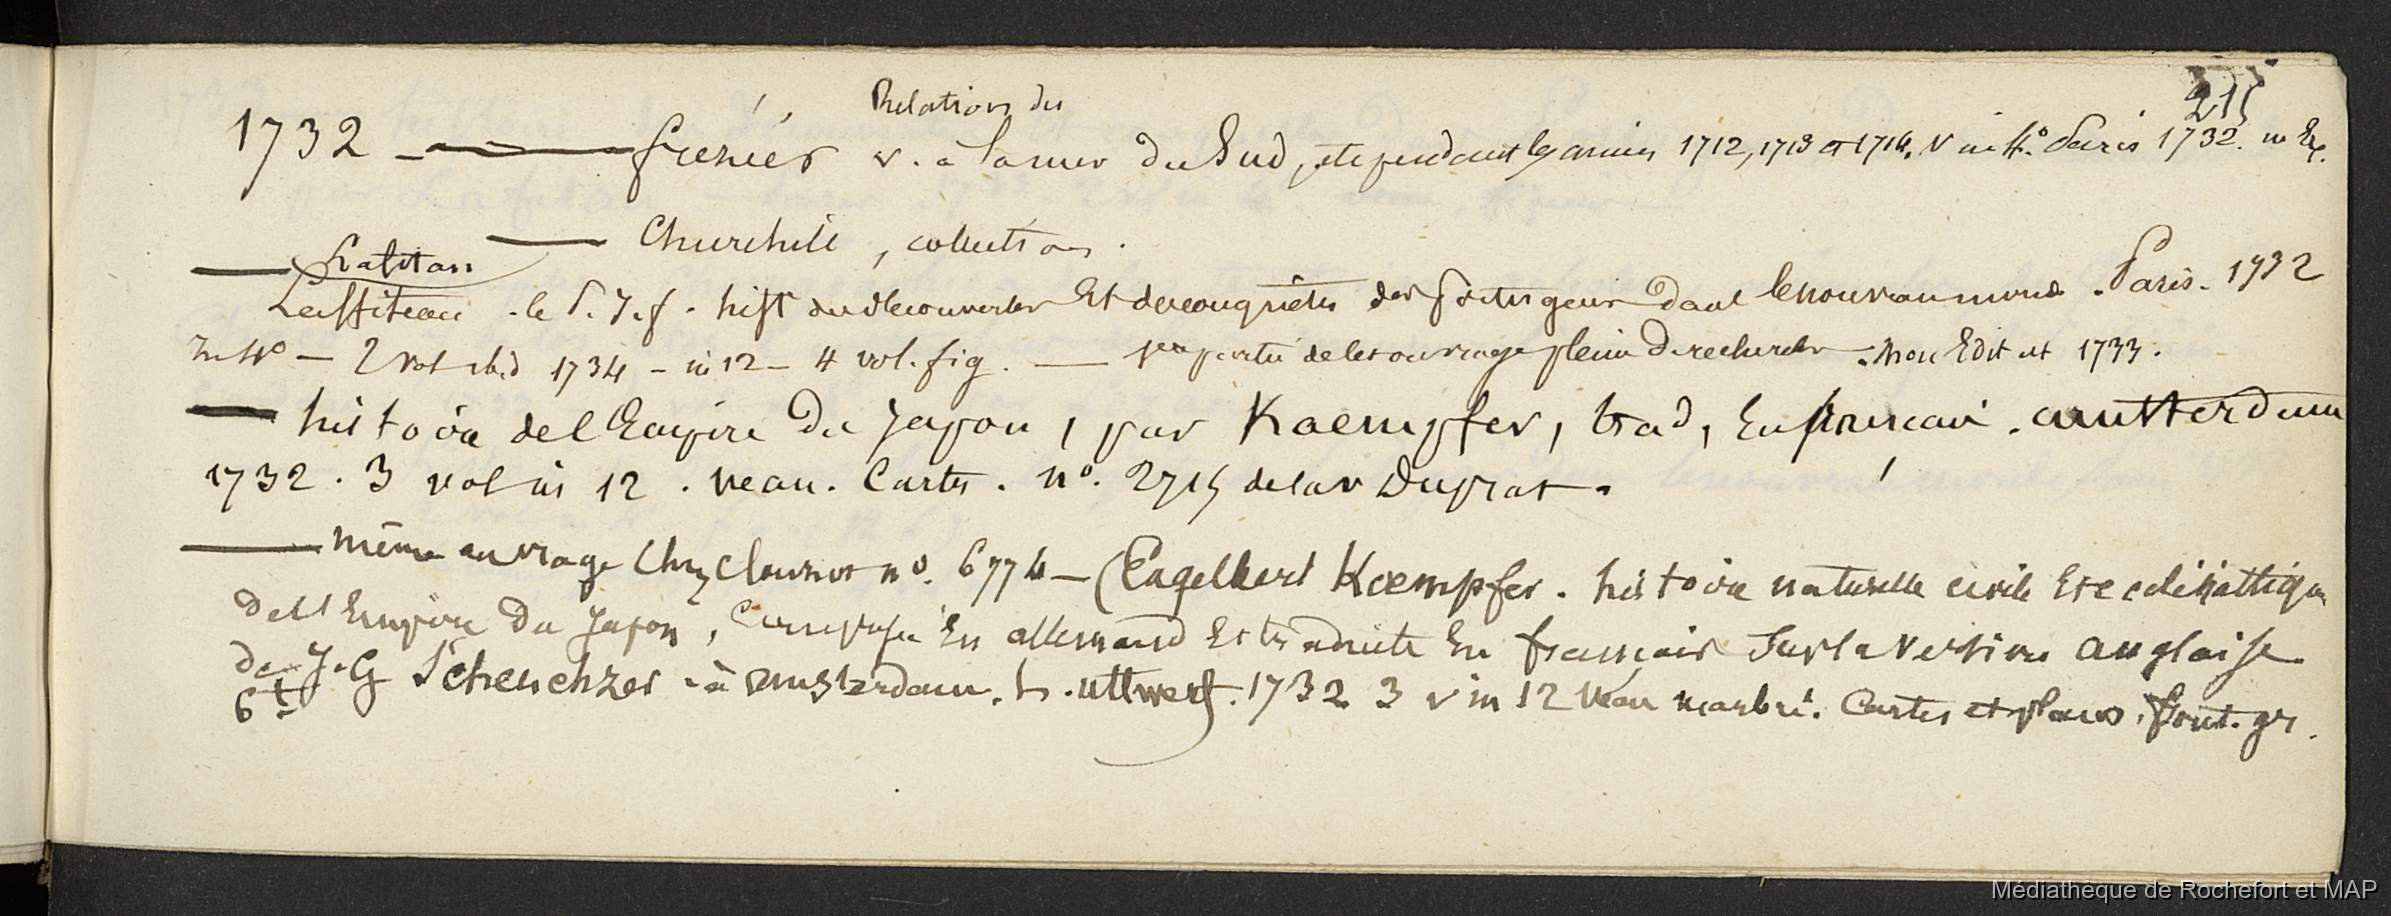 215
Relation du
1732 — frézier v. à la mer du Sud, etc pendant les années 1712, 1713 et 1714. v in 4° Paris 1732. in
— Churchill, collections.
— Lafitau
Laffiteau . le P. J. f . hist des découvertes Et des conquêtes des portugais dans le nouveau monde . Paris . 1732
In 4° — 2 vol ibid 1734 — in 12 — 4 vol. fig. — partie de cet ouvrage plein de recherches . mon Edit est 1733.
— histoire de l'Empire du Japon, par Kaempfer, trad, En francais . amsterdam
1732 . 3 vol in 12 . veau . Cartes . n°. 2715 de la v Duprat .
— même ouvrage Chez n°. 6774 — (Engelbert Kaempfer . histoire naturelle civile Et ecclésiastique
de l'Empire du Japon, Composée En allemand Et traduite En français Sur la Version anglaise
de J. G Scheuchzer . à amsterdam . h . uttwerf . 1732 3 v in 12 veau marbré . Cartes et plans . front . gr .
6 t
Médiathèque de Rochefort et MAP